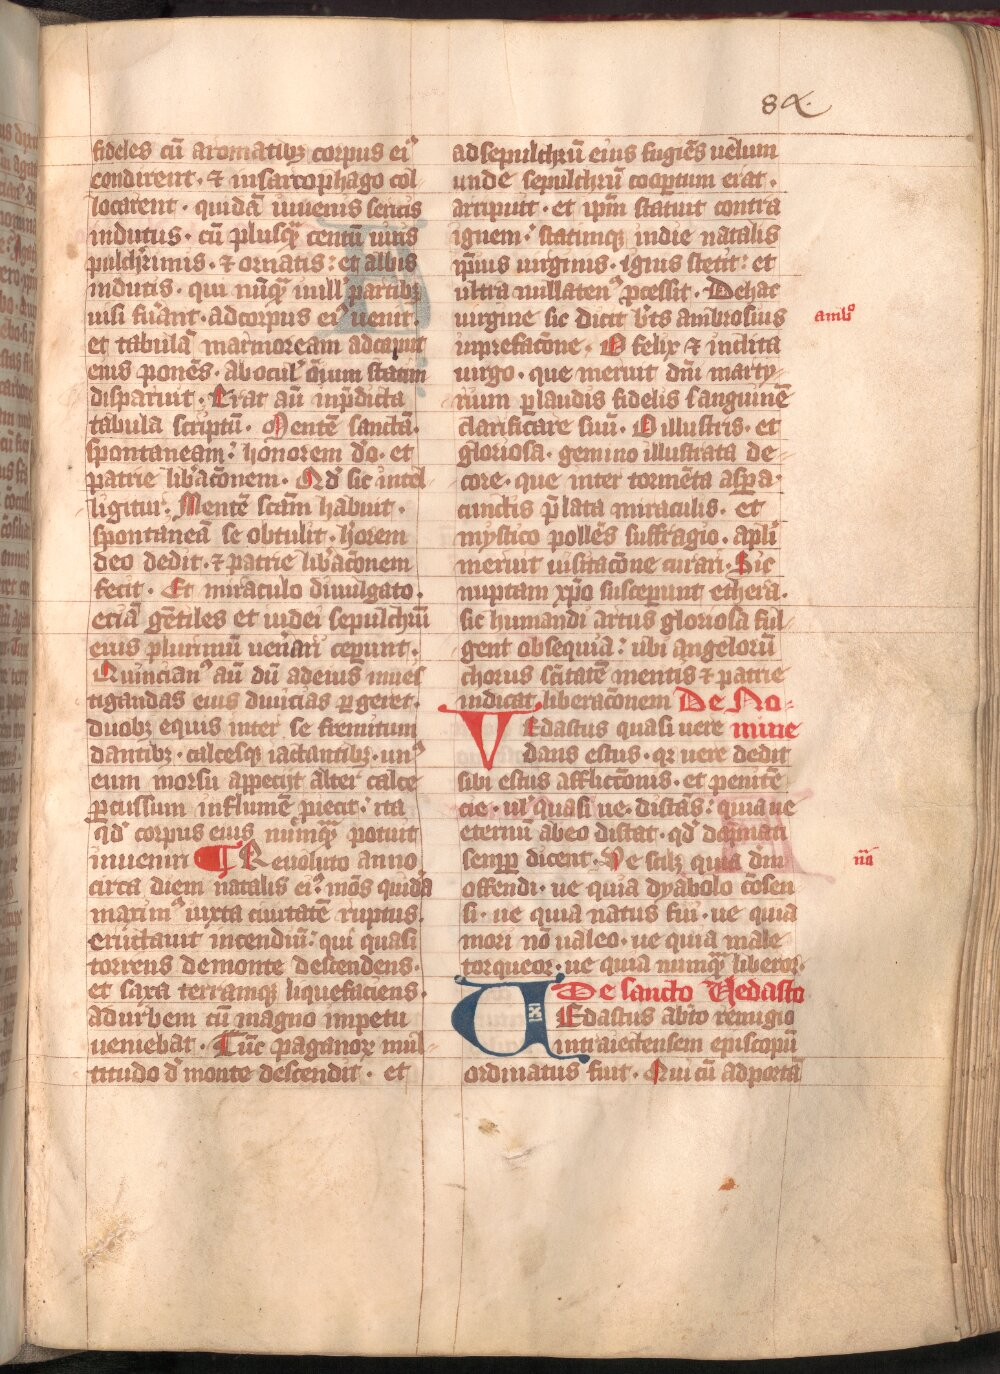 84.
fideles cū aromatibꝫ corpus ei᷒
condirent · ⁊ in sarcophago col
locarent · quidā iuuenis sericis
indutus · cū plusqꝫ centū uiris
pulcherrimis · ⁊ ornatis : et albis
indutis · qui nūqꝫ in illꝭ partibꝫ
uisi fuerant · ad corpus ei᷒ uenit ·
et tabulā marmoream ad caput
eius ponēs · ab oculꝭ oīum statim
disparuit · Erat aūt in p̄dicta
tabula scriptū · Mentē sanctā ·
spontaneam : honorem d̄o · et
patrie libac̄onem · Qd̛ sic intel
ligitur · Mentē sc̄am habuit ·
spontaneā se obtulit · hōrem
deo dedit · ⁊ patrie libac̄onem
fecit · Et miraculo diuulgato ·
etiā gētiles et iudei sepulchrū
eius plurimū uenari ceperunt ·
Quincian᷒ aū dū ad eius inues
tigandas eius diuicias ꝑgeret ·
duobꝫ equis inter se fremitum
dantibꝫ · calcesqꝫ iactantibꝫ · un᷒
eum morsu appetijt alter calce
ꝑcussum in flumē ꝓiecit : ita
qd̛ corpus eius numqꝫ potuit
inueniri ¶ Reuoluto anno
circa diem natalis ei᷒ · mōs quidā
maxim᷒ iuxta ciuitatē ruptus ·
eructauit incendiū : qui quasi
torrens de monte descendens ·
et saxa terramqꝫ liquefaciens ·
ad urbem cū magno impetu
ueniebat · Tūc paganoꝝ mul
titudo d̛ monte descendit · et
ad sepulchrū eius fugiēs uelum
unde sepulchrū coopertum erat ·
arripuit · et ip̄m statuit contra
ignem : statimqꝫ in die natalis
ip̄ius uirginis · ignis stetit : et
ultra nullaten᷒ ꝓcessit · De hac
uirgine sic dicit b̄ts ambrosius
amb᷒
in prefac̄one · O felix ⁊ inclita
uirgo · que meruit dn̄i marty
rium ꝑ laudis fidelis sanguinē
clarificare suū · O illustris · et
gloriosa · gemino illustrata de
core · que inter tormēta aspa ·
cunctis p̄lata miraculis · et
mystico pollēs suffragio · apl̄i
meruit uisitac̄one curari · Sic
nuptam xp̄o susceperunt ethera ·
sic humandi artus gloriosa ful
gent obsequia : ubi angeloꝝ
chorus sc̄itatē mentis ⁊ patrie
indicat liberac̄onem De No-
VEdastus quasi uere mine
dans estus · qꝛ uere dedit
sibi estus afflicc̄onis · et penitē
cie · ul̛ quasi ue · distās : quia ue
eternū ab eo distat · qd̛ dampnati
semꝑ dicent · Ve scilꝫ quia dn̄m
nā
offendi · ue quia dyabolo cōsen
si · ue quia natus fui · ue quia
mori nō ualeo · ue quia male
torqueor · ue quia numqꝫ liberor ·
De sancto Vedasto
VEdastus a bt̄o remigio
in traiectensem episcopū
ordinatus fuit · Qui cū ad portā